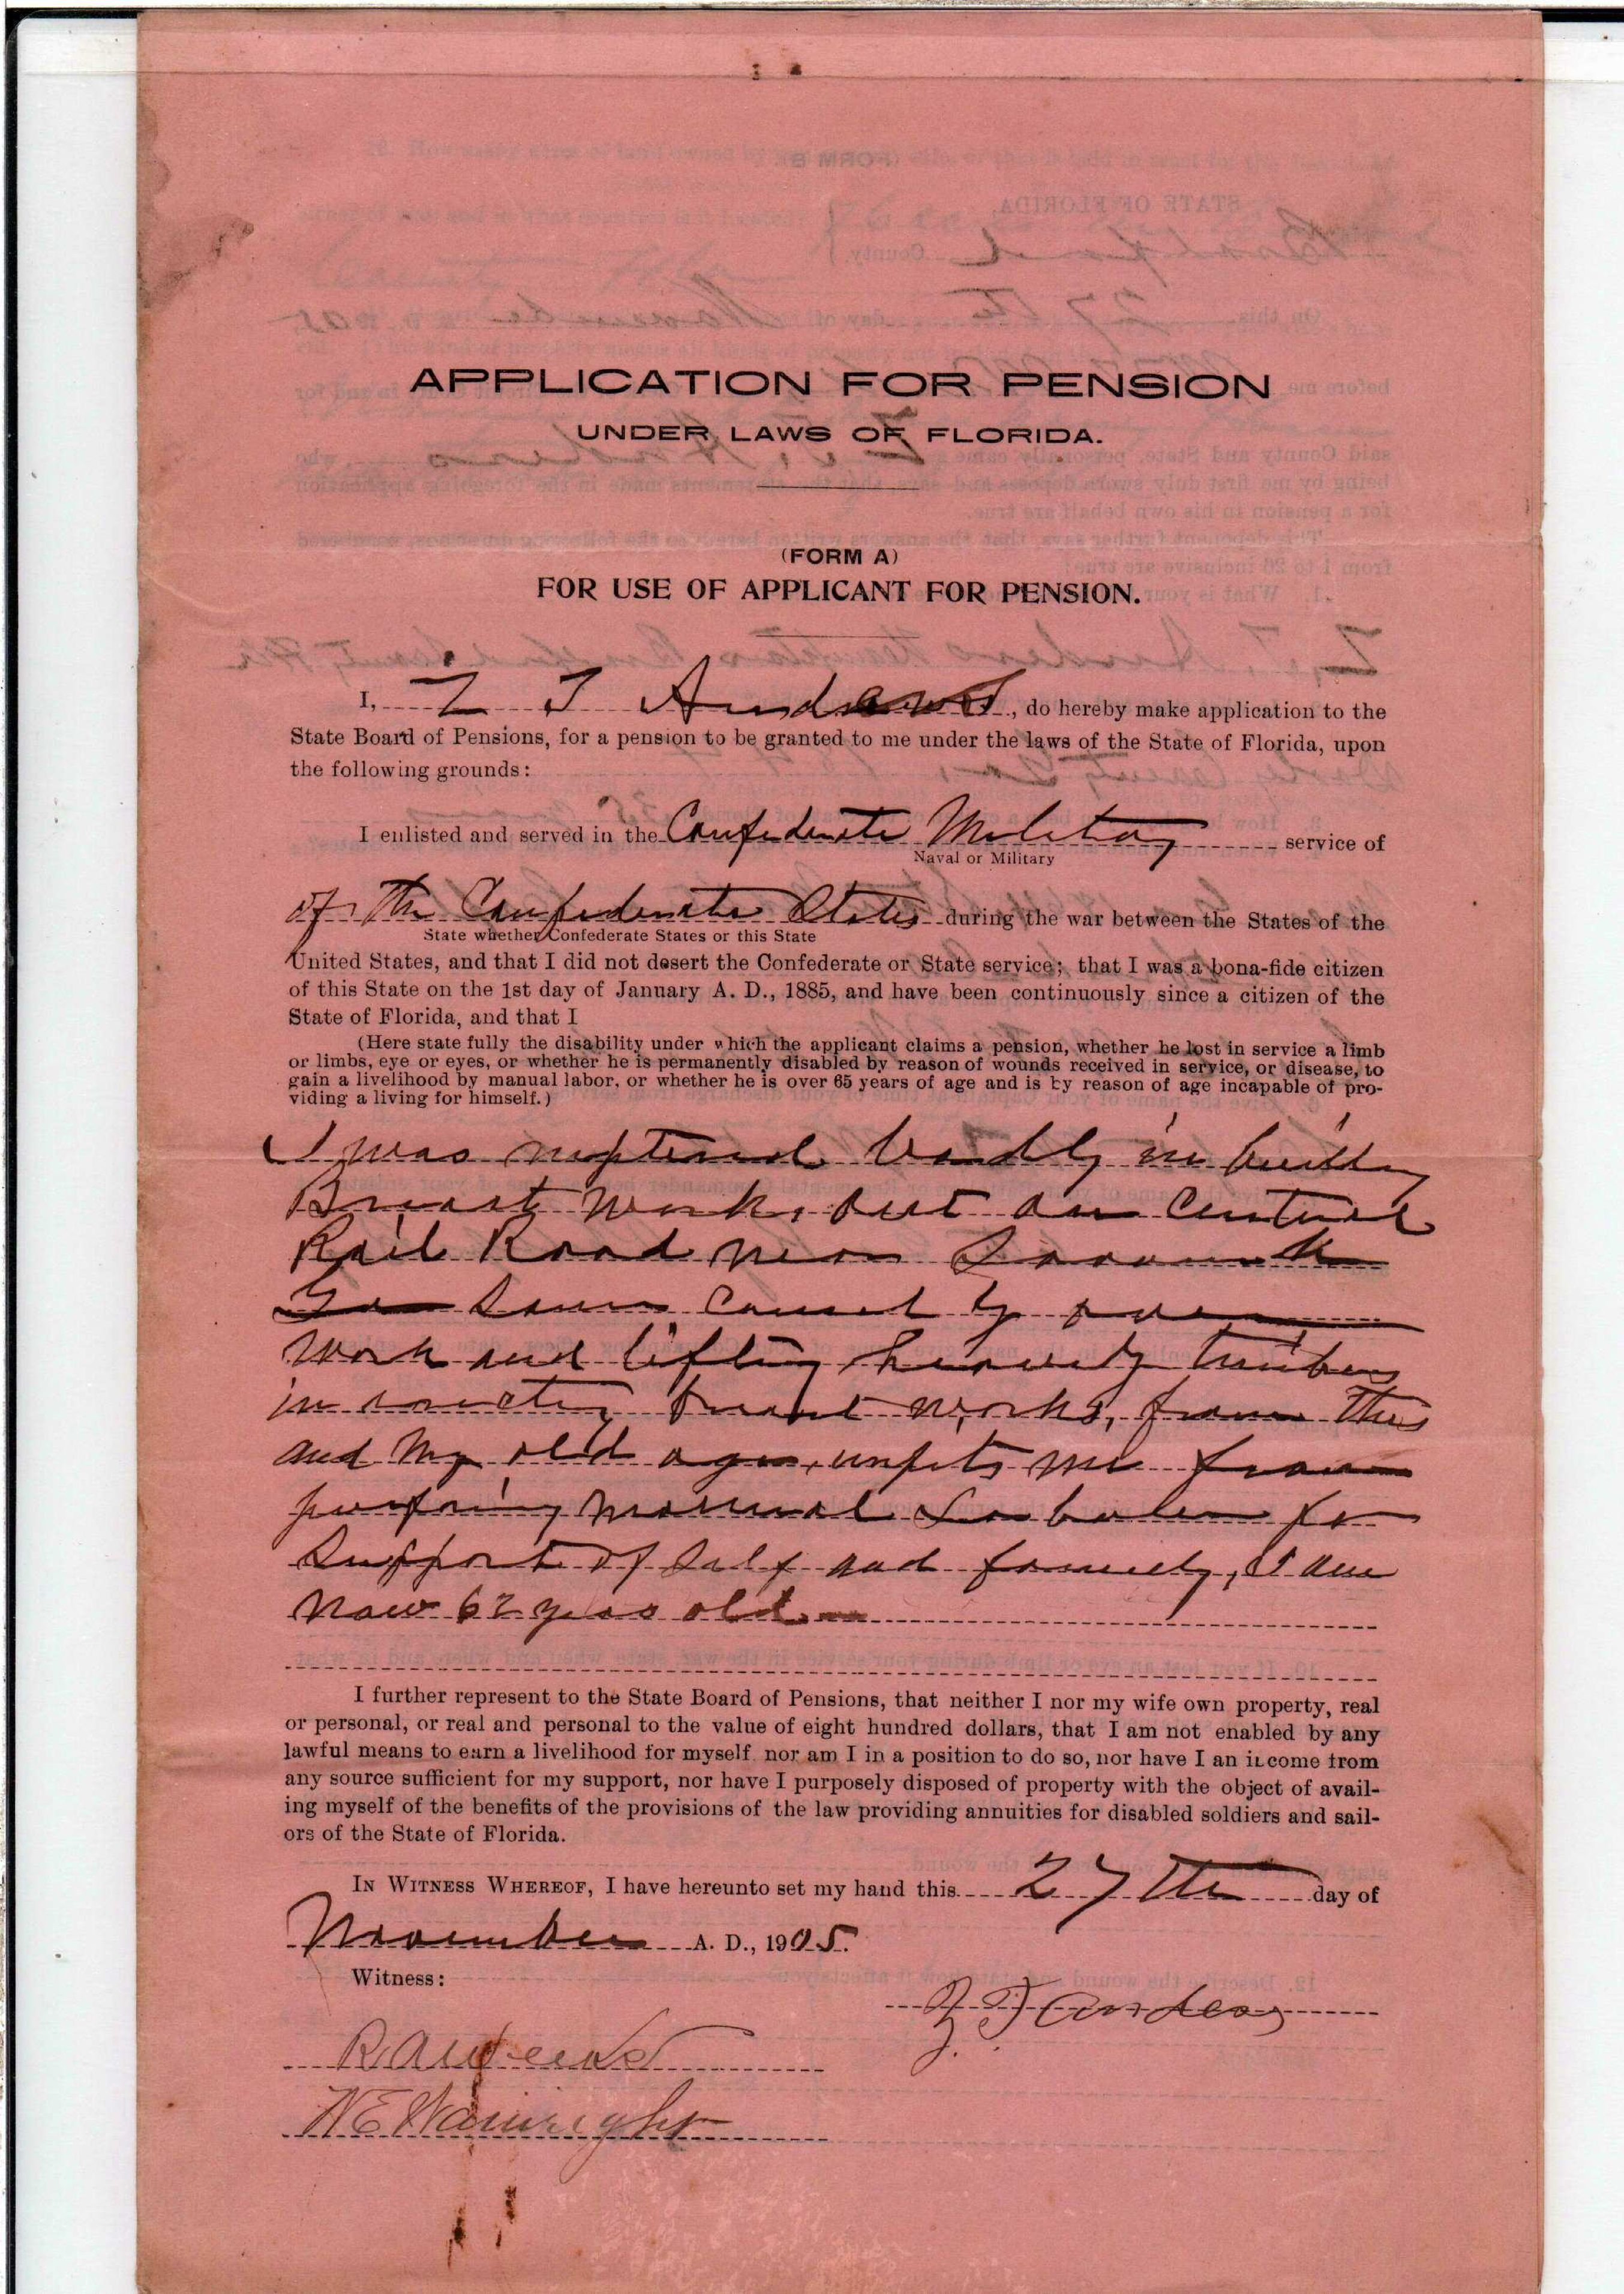 APPLICATION FOR PENSION
UNDER LAWS OF FLORIDA.
(FORM A)
FOR USE OF APPLICANT FOR PENSION.
I, Z T Anders, do hereby make application to the
State Board of Pensions, for a pension to be granted to me under the laws of the State of Florida, upon
the following grounds:
I enlisted and served in the Confederate Military service of
Naval or Military
of the Confederate States during the war between the States of the
State whether Confederate States or this State
United States, and that I did not desert the Confederate or State service; that I was a bona-fide citizen
of this State on the 1st day of January A. D., 1885, and have been continuously since a citizen of the
State of Florida, and that I
(Here state fully the disability under which the applicant claims a pension, whether he lost in service a limb
or limbs, eye or eyes, or whether he is permanently disabled by reason of wounds received in service, or disease, to
gain a livelihood by manual labor, or whether he is over 65 years of age and is by reason of age incapable of pro-
viding a living for himself.)
I was ruptured badly in building
Breast works out on Central
Rail Road near Savannah
Ga Same caused by over
work and lifting heavy timbers
in erecting breast works, from this
and my old age, unfits me from
performing manual labor for
Support of Self and family, I am
now 62 years old
I further represent to the State Board of Pensions, that neither I nor my wife own property, real
or personal, or real and personal to the value of eight hundred dollars, that I am not enabled by any
lawful means to earn a livelihood for myself nor am I in a position to do so, nor have I an income from
any source sufficient for my support, nor have I purposely disposed of property with the object of avail-
ing myself of the benefits of the provisions of the law providing annuities for disabled soldiers and sail-
ors of the State of Florida.
IN WITNESS WHEREOF, I have hereunto set my hand this 27th day of
November A. D., 1905.
Witness:
Z. T Anders
R A Weeks
W E Wainright